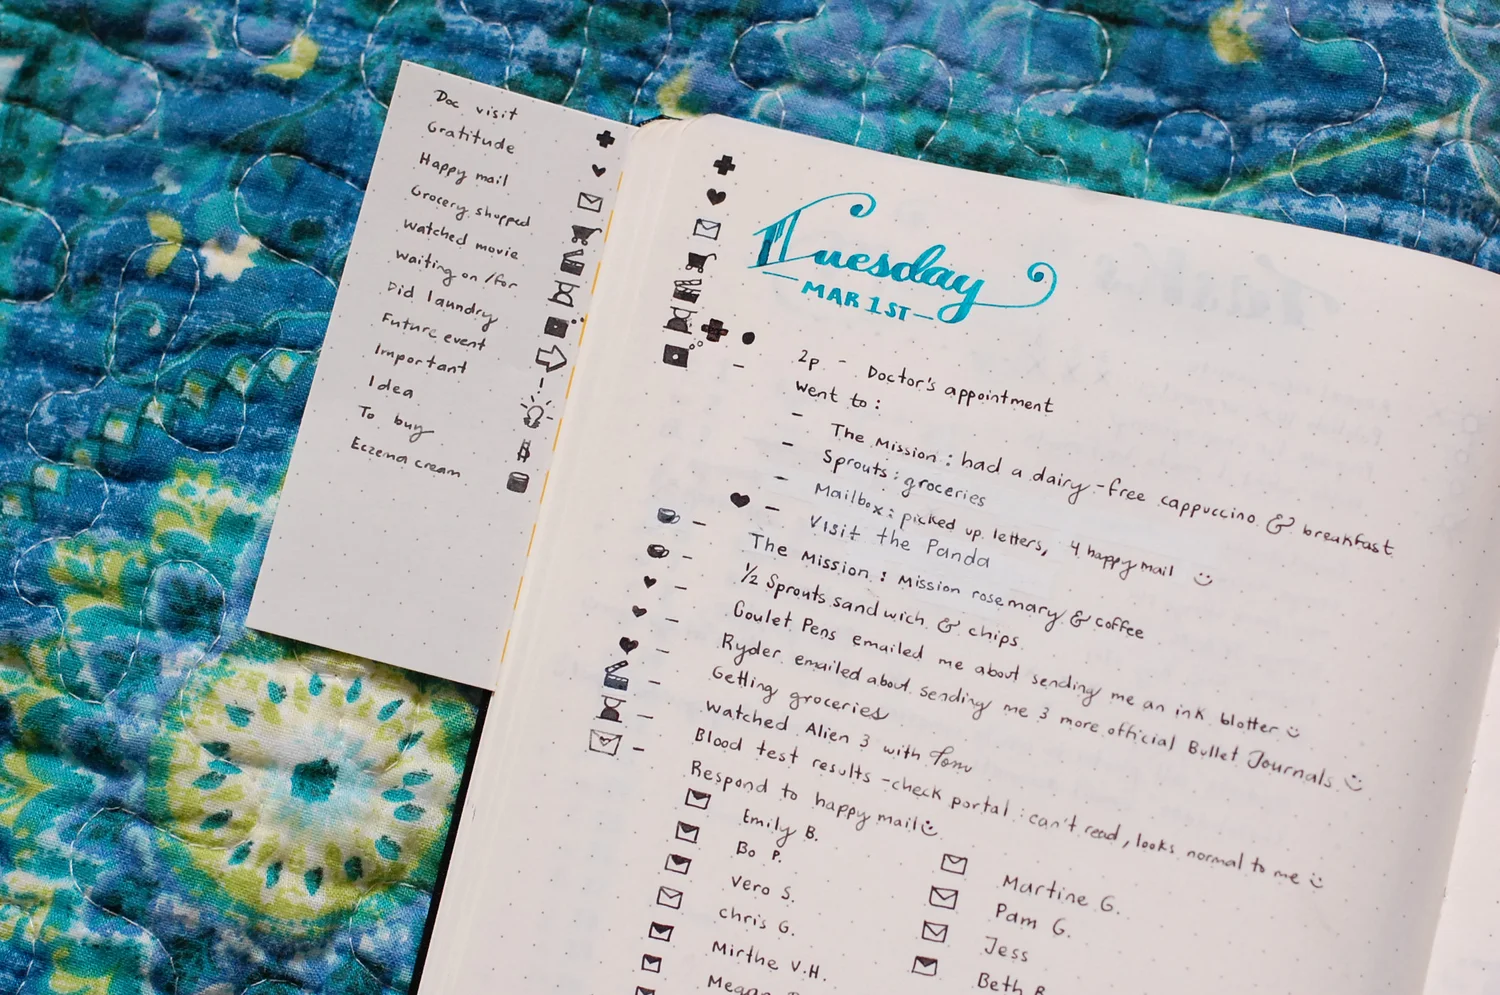 Doc visit
Gratitude
Happy mail
Grocery shopped
Watched movie
Waiting on/for
Did laundry
Future event
Important
Idea
To buy
Eczema cream
Tuesday
- MAR 1ST -
2p - Doctor's appointment
- Went to:
- The Mission: had a dairy-free cappuccino & breakfast
- Sprouts: groceries
- Mailbox: picked up letters, 4 happy mail
- Visit the Panda
- The Mission: Mission rosemary & coffee
- 1/2 Sprouts sandwich & chips
- Goulet Pens emailed me about sending me an ink blotter
- Ryder emailed about sending me 3 more official Bullet Journals
- Getting groceries
- Watched Alien 3 with Tom
- Blood test results - check portal: can't read, looks normal to me
- Respond to happy mail
Emily B.
Bo P.
Vero S.
Chris G.
Mirthe V.H.
Megan
Martine G.
Pam G.
Jess
Beth